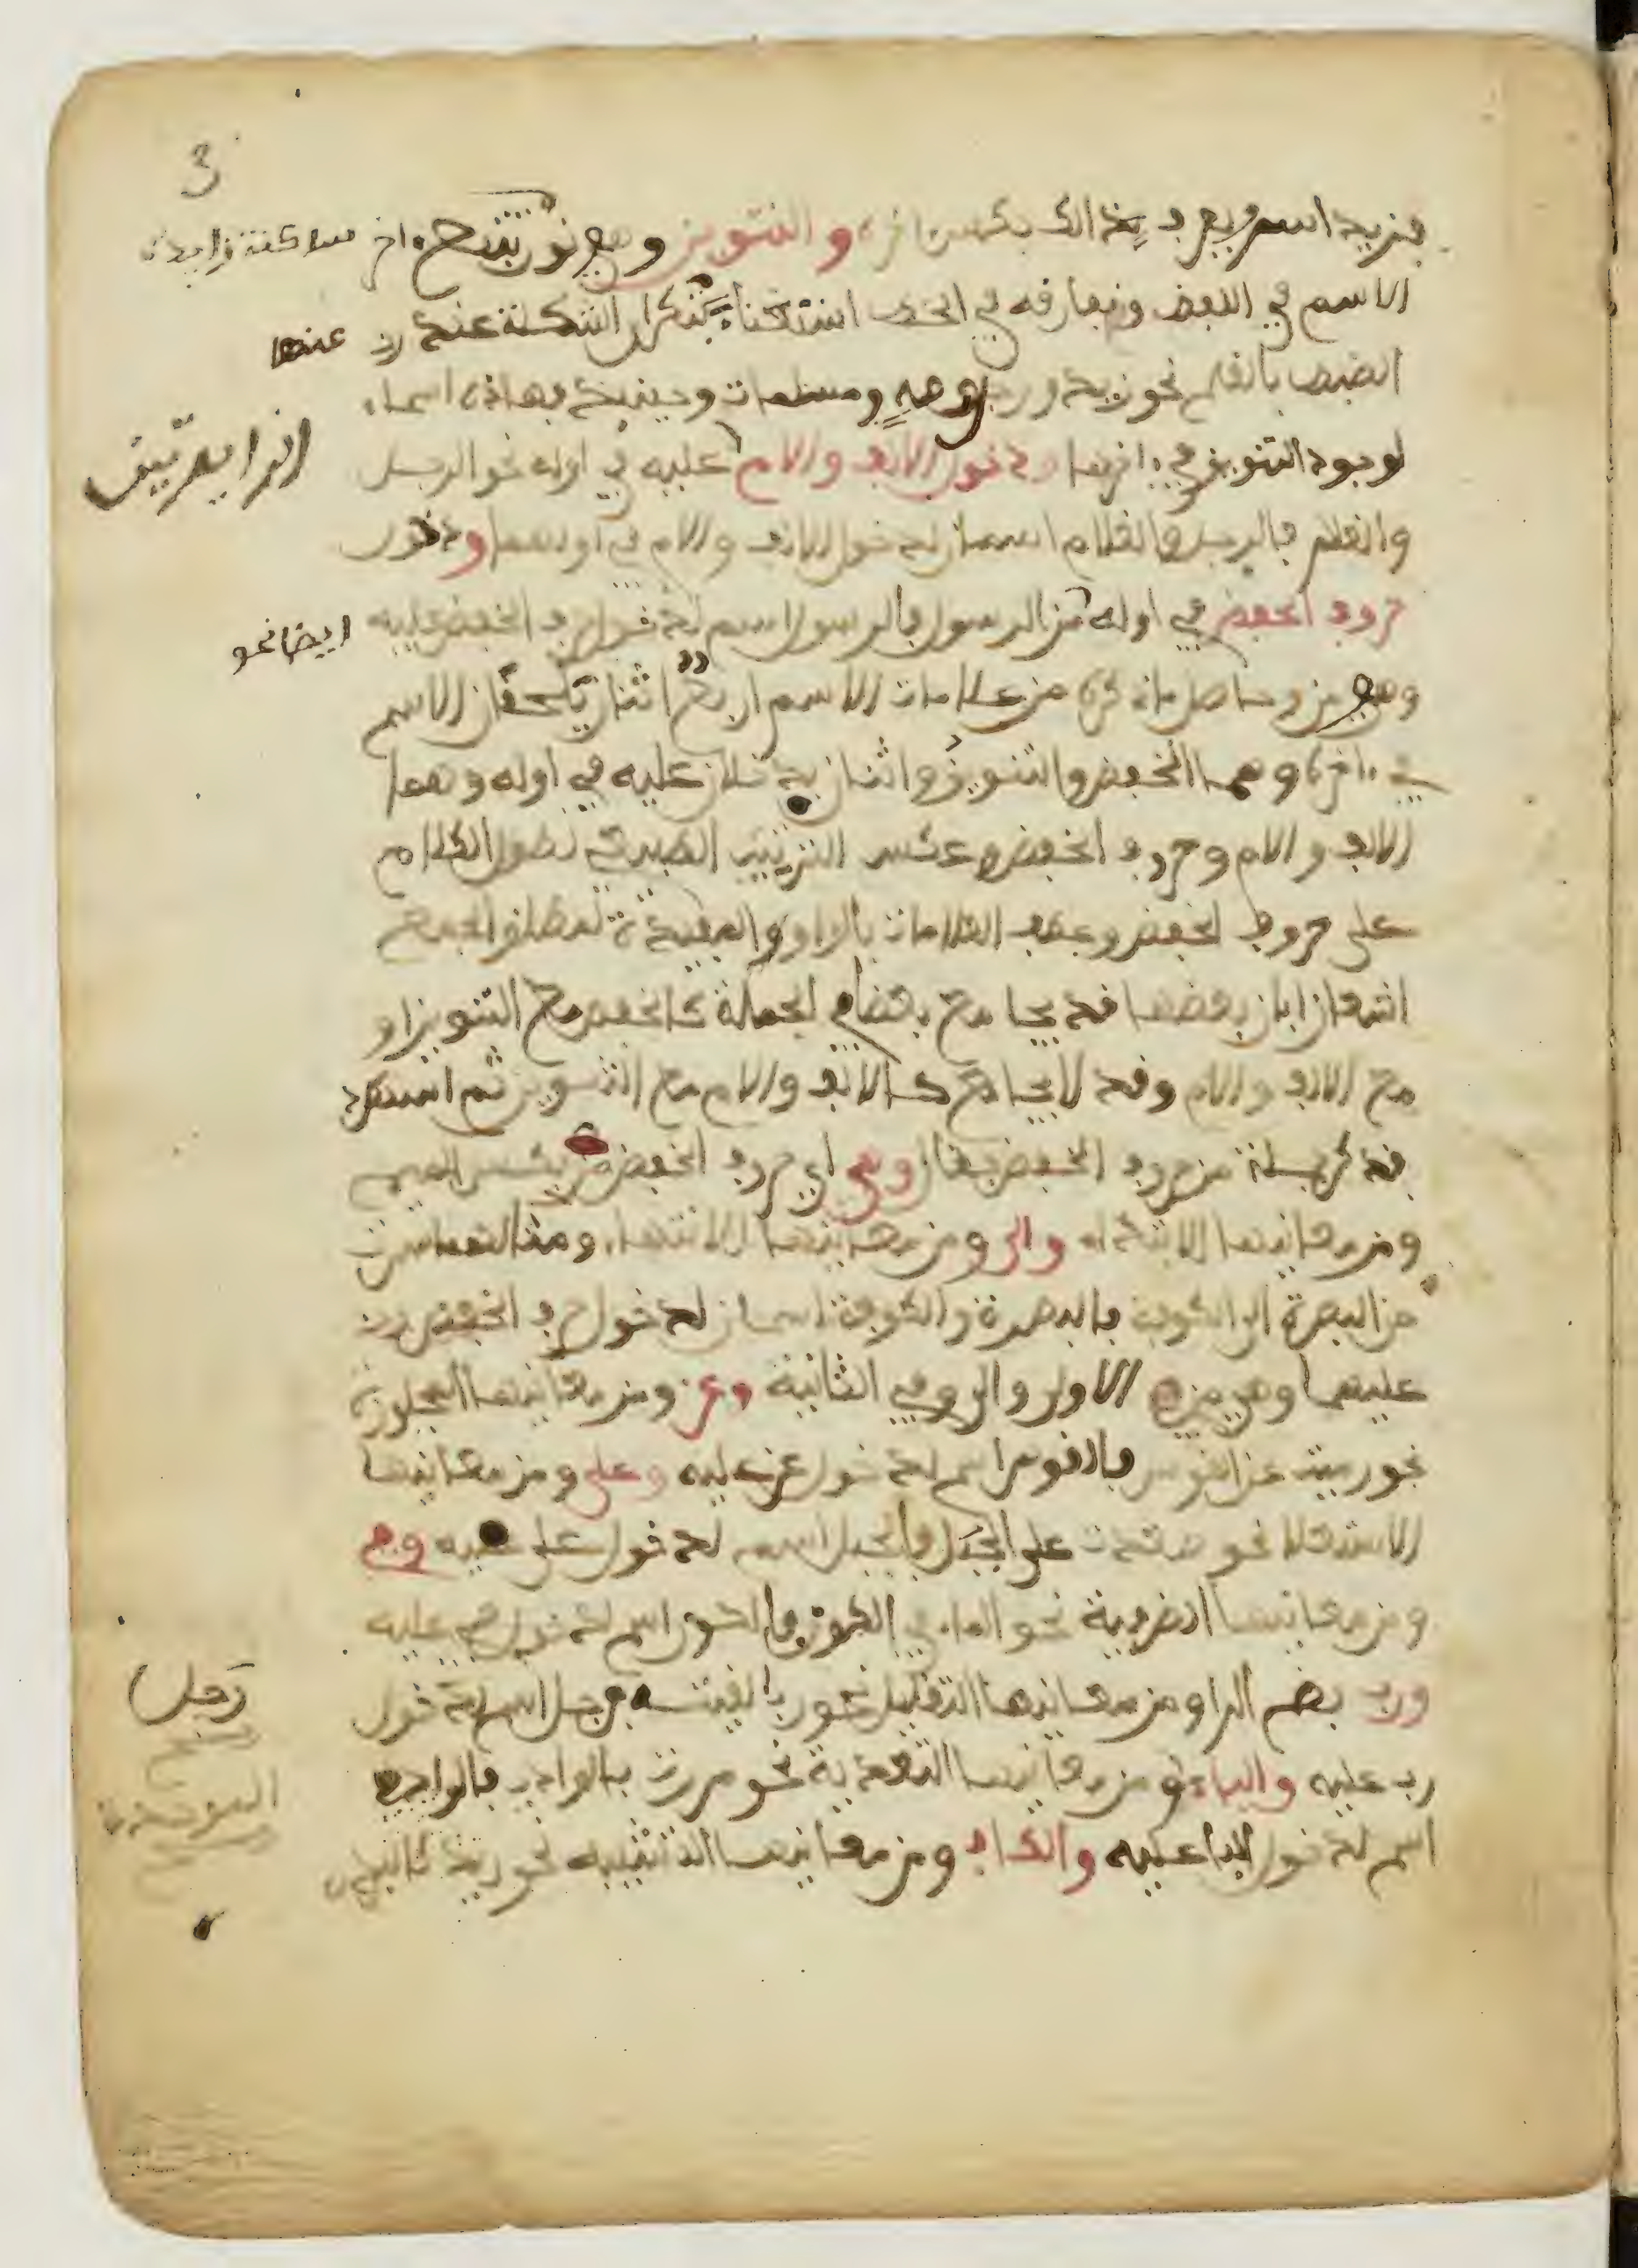 3
فزيد اسم ويعرف بذالك بكسر اخره والتنوين وهو نون تتبع ءاخر ساكنة زايدة
الاسم في اللفظ وتفارقه في الخط استغناء بتكرار الشكلة عند
عنها
الضبط بالقلم نحو زيد ورجل وصه ومسلمات وحينيذ فهاذه اسماء
لوجود التنوين في ءاخرها ودخول الالف والام عليه في اوله نحو الرجل
الزايدتين
والغلام فالرجل والغلام اسمان لدخول الالف والام في اولهما ودخول
حروف الخفض في اوله من الرسول فالرسول اسم لدخول حرف الخفض عليه
ايضا نحو
وهو من وحاصل ما ذكره من علامات الاسم اربع اثنان يلحقان الاسم
في ءاخره وهما الخفض والتنوين واثنان يدخلان عليه في اوله وهما
الالف والام وحروف الخفض وعكس الترتيب الطبيعي لطول الكلام
على حروف الخفض وعطف العلامات بالواو المفيدة لمطلق الجمع
اشعارا بان بعضها قد يجامع بعضا في الجملة كالخفض مع التنوين او
مع الالف والام وقد لا يجامع كالالف والام مع التنوين ثم استطرد
فذكر جملة من حروف الخفض فقال وهي اي حروف الخفض من بكسر الميم
ومن معانيها الابتداء والى ومن معانيها الانتهاء ومثالهما سرت
من البصرة الى الكوفة فالبصرة والكوفة اسمان لدخول حرف الخفض
عليهما وهو من في الاولى والى في الثانية وعن ومن معانيها المجاوزة
نحو رميت عن القوس فالقوس اسم لدخول عن عليه وعلى ومن معانيها
الاستعلا نحو صعدت على الجبل فالجبل اسم لدخول على عليه وفي
ومن معانيها الظرفية نحو الماء في الكوز فالكوز اسم لدخول في عليه
ورب بضم الرا ومن معانيها التقليل نحو رب رجل لقيته فرجل اسم لدخول
رب عليه والباء ومن معانيها التعدية نحو مررت بالوادي فالوادي
الموحدة
اسم لدخول البا عليه والكاف ومن معانيها التشبيه نحو زيد كالبدر